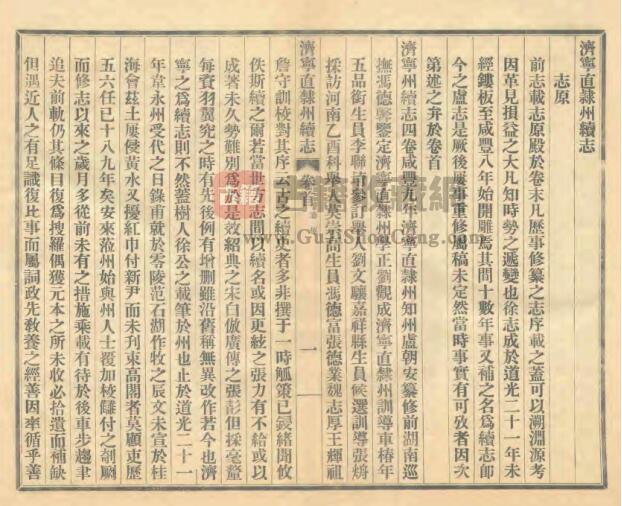 濟寧直隸州續志
志原
前志載志原殿於卷末凡歷事修纂之志序載之蓋可以溯淵源考
因革見損益之大凡知時勢之遞變也徐志成於道光二十一年未
經鏤板至咸豐八年始開雕焉其間十數年事又補之名爲續志卽
今之盧志是厥後屢事重修屬稿未定然當時事實有可攷者因次
第述之弁於卷首
濟寧州續志四卷咸豐九年濟寧直隸州知州盧朝安纂修前湖南巡
撫馮德馨鑒定濟寧直隸州學正劉觀成濟寧直隸州訓導車椿年
五品銜生員李聯
採訪河南乙酉科舉人
濟寧直隸州續志
卷首
一
詹守訓校對其序云古之續史者多非撰于一時觚策已
佚斯續之爾若當世方志間以續名或因更絃之張力有不給或以
成著未久勢難別爲
每資羽翼究之時有先後例有增刪雖沿舊稱無異改作若今也濟
寧之爲續志則不然蓋樹人徐公之載筆於州也止於道光二十一
年韋永州受代之日錄甫就於零陵范石湖作牧之辰文未宣於桂
海會茲土屢侵黃水又擾紅巾付新尹而未刋束高閣者莫顧更歷
五六任已十八九年矣安來涖州始與州人士覆加校讎付之剞劂
而修志以來之歲月多從前未有之措施乘載有待於後車步趨聿
追夫前軌仍其條目復爲搜羅偶獲元本之所未收必拾遺而補缺
但溯近人之有足識復比事而屬詞政先敎養之經善因率循乎善
www.GuJiShuCang.com